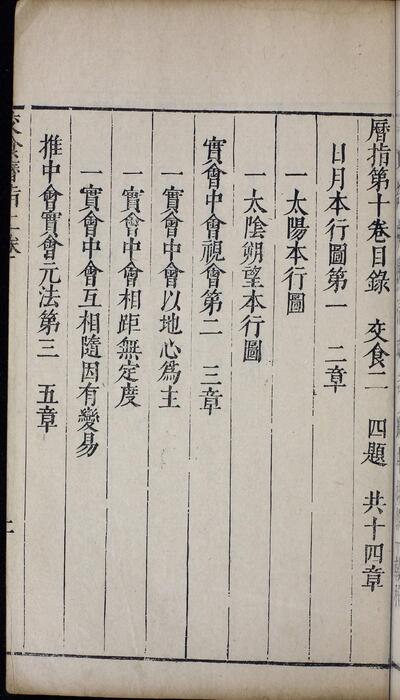 曆指第十卷目錄 交食二 四題 共十四章
日月本行圖第一 二章
一太陽本行圖
一太陰朔望本行圖
實會中會視會第二 三章
一實會中會以地心爲主
一實會中會相距無定度
一實會中會互相隨因有變易
推中會實會元法第三 五章